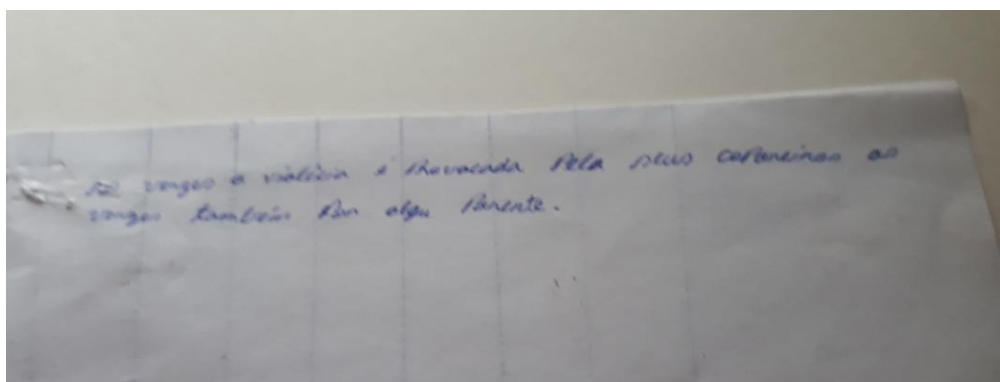 as venges a violêcia é Provocada Pela seus coPaneiros as
venges também Por algu Parente.